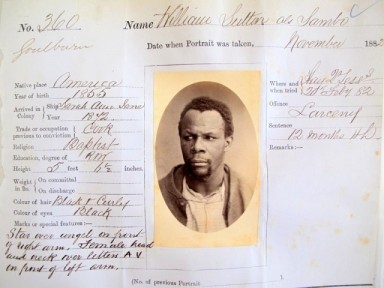 No. 360 Name William Sutton als Sambo
Goulburn
Date when Portrait was taken, November 1882
Native place America
Year of birth 1855
Arrived in Colony Ship Sarah Ann Jane
Year 1872
Trade or occupation previous to conviction Cook
Religion Baptist
Education, degree of R&W
Height 5 feet 6½ inches
Weight in lbs. On committal
On discharge
Colour of hair Black & Curly
Colour of eyes Black
Marks or special features:—
Star over angel on front
of right arm. Female head
and neck over letters A.V
on front of left arm.
Where and when tried
20th Feby 82
Offence Larceny
Sentence
12 months H.L
Remarks:—
(No. of previous Portrait